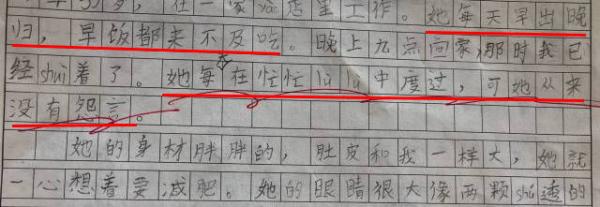 岁，在一家酒店里工作。她每天早出晚
归，早饭都来不及吃。晚上九点回家，那时我已
经shui着了。她每天在忙忙lù lù中度过，可她从来
没有怨言。
她的身材胖胖的，肚皮和我一样大，她就
一心想着要减肥。她的眼睛很大像两颗shú透的